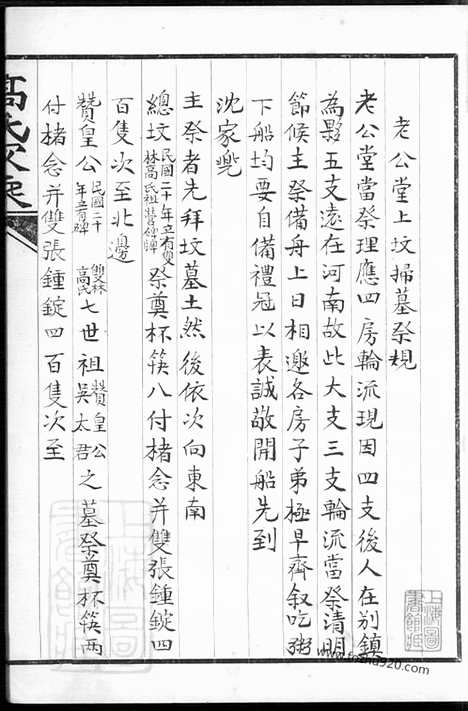 老公堂上坟掃墓祭規
老公堂當祭理應四房輪流現因四支後人在別鎮
為夥五支遠在河南故此大支三支輪流當祭清明
節候主祭備舟上日相邀各房子弟極早齊叙吃粥
下船均要自備禮冠以表誠敬開船先到
沈家兠
主祭者先拜坟墓土然後依次向東南
總坟民國二十年立有雙
林高氏祖塋碑祭奠杯筷八付楮念并雙張錘錠四
百隻次至北邊
贊皇公民國二十
年立有碑雙林
高氏七世祖贊皇公
吳太君之墓祭奠杯筷兩
付楮念并雙張錘錠四百隻次至
上海圖
書館藏
www.foshu920.com